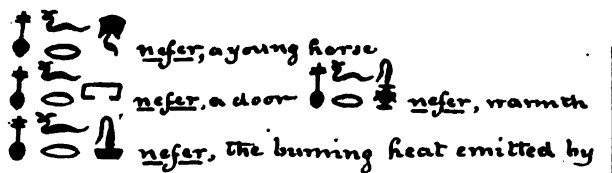 𓄤𓆑𓂋 nefer, a young horse
𓄤𓆑𓂋𓉐 nefer, a door 𓄤𓆑𓂋𓊮 nefer, warmth
𓄤𓆑𓂋𓊮 nefer, the burning heat emitted by